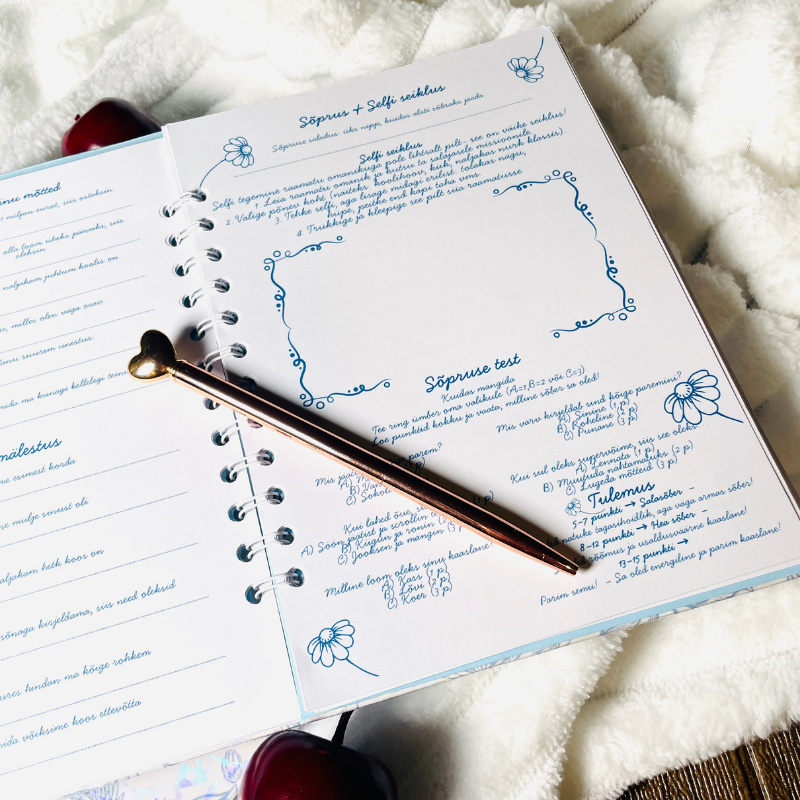 inu mõtted
miljon eurot, siis ostaksin
olla loom üheks päevaks, siis
oleksin
naljakam juhtum koolis on
milles olen väga osav
inu suurim unistus:
mida ma kunagi kellelegi
mälestus
esimest korda
mulje sinust oli
aljakam hetk koos on
sõnaga kirjeldama, siis need oleksid
ures hindan ma kõige rohkem
mida võiksime koos ettevõtta
Sõprus + Selfi seiklus
Sõpruse saladus: üks nipp, kuidas alati sõbraks jääda
Selfi seiklus
Selfi tegemine raamatu omanikuga pole lihtsalt pilt- see on väike seiklus!
1. Leia raamatu omanik ja kutsu ta salajasele missioonile.
2. Valige põnev koht (näiteks koolihoov, kiik, naljakas nurk klassis)
3. Tehke selfi, aga lisage midagi erilist: tobakas nägu,
hüpe, peitke end kapi taha vms.
4. Trükkige ja kleepige see pilt siia raamatusse
Sõpruse test
Kuidas mängida
Tee ring ümber oma valikule (A=1,B=2 või C=3)
Loe punktid kokku ja vaata, milline sõber sa oled!
Mis
parem?
A)
B)
C)
Kui lähed õue,
A) Söön jäätist ja scrollin
B) Kiigun ja ronin
C) Jooksen ja mängin
Milline loom oleks sinu kaaslane?
A) Kass (1 p)
B) Lõvi (2 p)
C) Koer (3 p)
Mis värv kirjeldab sind kõige paremini?
A) Sinine (1 p)
B) Roheline (2 p)
C) Punane (3 p)
Kui sul oleks supervõime, siis see oleks
A) Lennata (1 p)
B) Muutuda nähtamatuks (2 p)
C) Lugeda mõtteid (3 p)
Tulemus
5-7 punkti → Salasõber -
natuke tagasihoidlik, aga väga armas sõber!
8-12 punkti → Hea sõber -
rõõmus ja usaldusväärne kaaslane!
13-15 punkti →
Parim semu! - Sa oled energiline ja parim kaaslane!